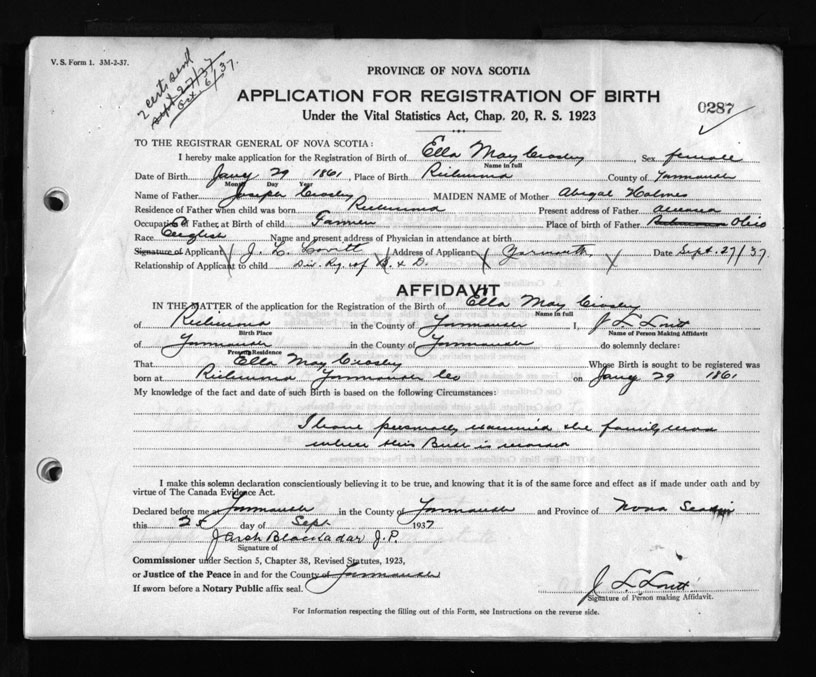 V. S. Form 1. 3M-2-37.
2 certs send
Sept 27/37
Oct. 6/37.
PROVINCE OF NOVA SCOTIA
APPLICATION FOR REGISTRATION OF BIRTH
0287
Under the Vital Statistics Act, Chap. 20, R. S. 1923
TO THE REGISTRAR GENERAL OF NOVA SCOTIA:
I hereby make application for the Registration of Birth of Ella May Crosby Sex female
Name in full
Date of Birth Jany 29 1861, Place of Birth Richmond County of Yarmouth
Month Day Year
Name of Father Joseph Crosby MAIDEN NAME of Mother Abigal Holmes
Residence of Father when child was born Richmond Present address of Father
Occupation of Father, at Birth of child Farmer Place of birth of Father Richmond Ohio
Race English Name and present address of Physician in attendance at birth
Signature of Applicant J. L. Lovitt Address of Applicant Yarmouth, Date Sept. 27/37.
Relationship of Applicant to child Div. Rg. of B. & D.
AFFIDAVIT
IN THE MATTER of the application for the Registration of the Birth of Ella May Crosby
Name in full
of Richmond in the County of Yarmouth I, J L Lovitt
Birth Place Name of Person Making Affidavit
of Yarmouth in the County of Yarmouth do solemnly declare:
Present Residence
That Ella May Crosby Whose Birth is sought to be registered was
born at Richmond Yarmouth Co on Jany 29 1861
My knowledge of the fact and date of such Birth is based on the following Circumstances:
I have personally examined the family
where this Birth is recorded
I make this solemn declaration conscientiously believing it to be true, and knowing that it is of the same force and effect as if made under oath and by
virtue of The Canada Evidence Act.
Declared before me at Yarmouth in the County of Yarmouth and Province of Nova Scotia
this 25 day of Sept 1937
J Arch Blackadar J.P.
Signature of
Commissioner under Section 5, Chapter 38, Revised Statutes, 1923,
or Justice of the Peace in and for the County of Yarmouth
If sworn before a Notary Public affix seal.
J L Lovitt
Signature of Person making Affidavit.
For Information respecting the filling out of this Form, see Instructions on the reverse side.